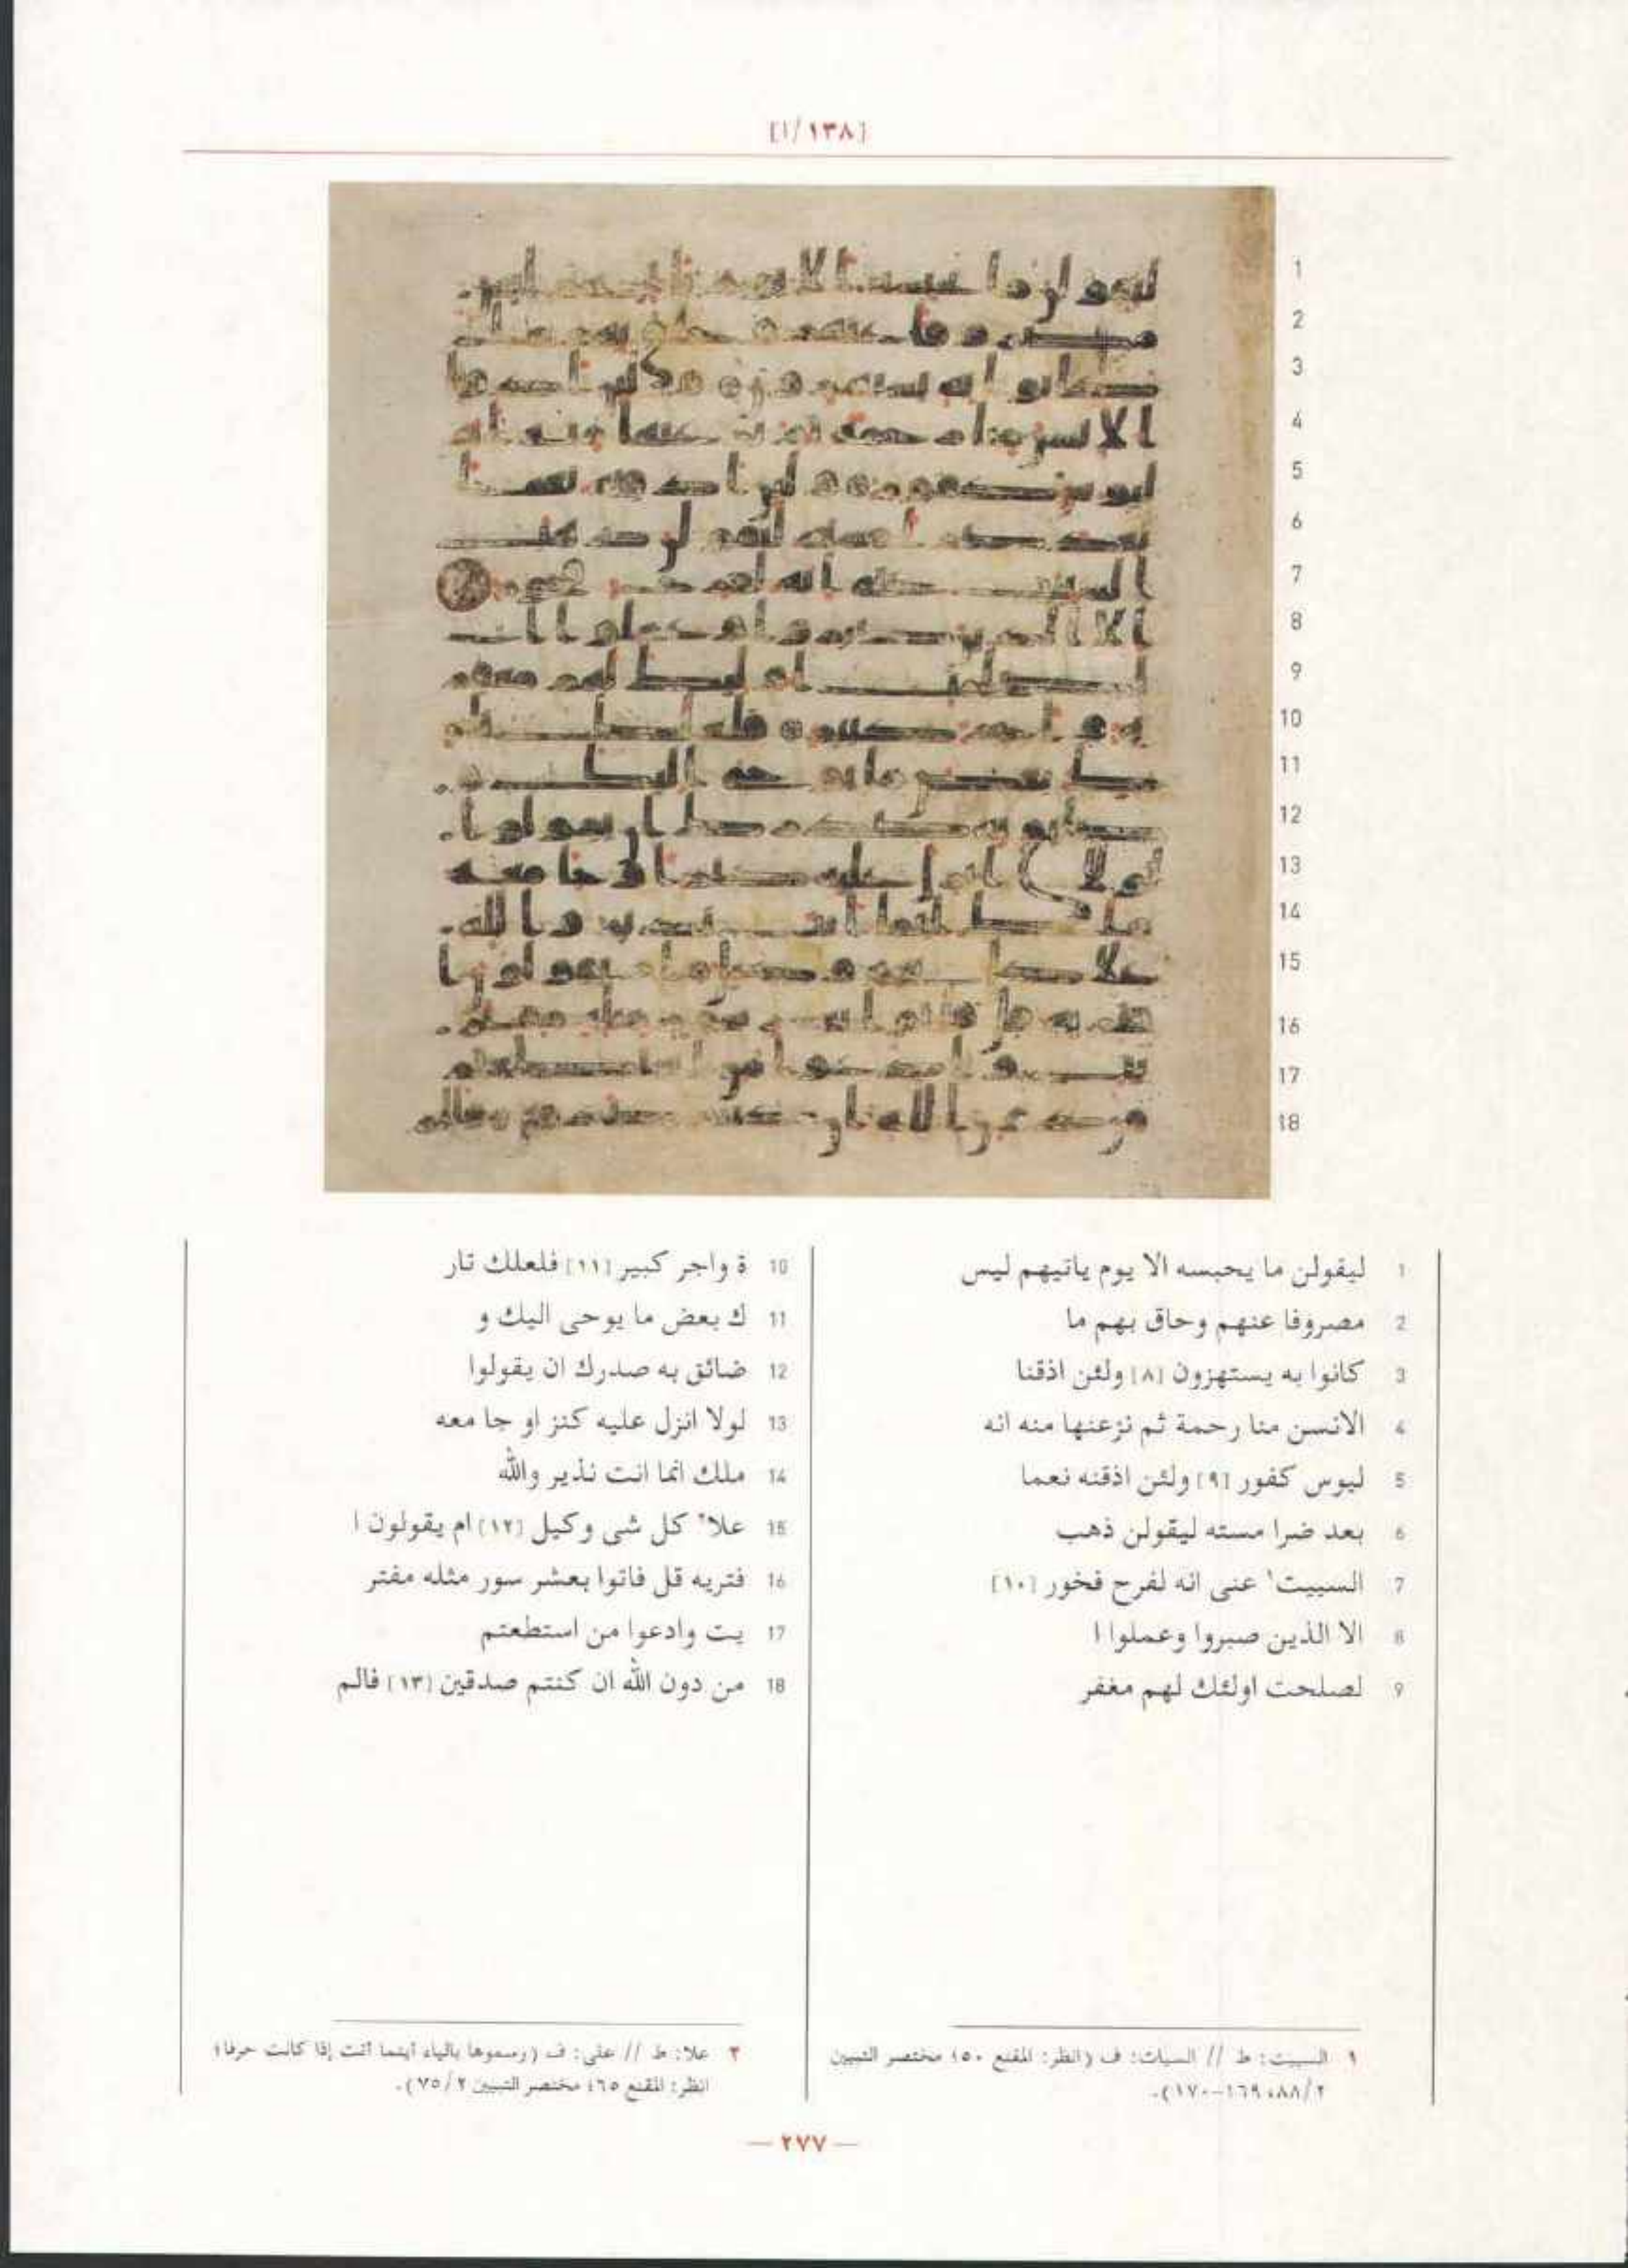 [١/١٣٨]
1
2
3
4
5
6
7
8
9
10
11
12
13
14
15
16
17
18
1 ليقولن ما يحبسه الا يوم ياتيهم ليس
2 مصروفا عنهم وحاق بهم ما
3 كانوا به يستهزون [٨] ولئن اذقنا
4 الانسن منا رحمة ثم نزعنها منه انه
5 ليوس كفور [٩] ولئن اذقنه نعما
6 بعد ضرا مسته ليقولن ذهب
7 السييت١ عنى انه لفرح فخور [١٠]
8 الا الذين صبروا وعملوا ا
9 لصلحت اولئك لهم مغفر
10 ة واجر كبير [١١] فلعلك تار
11 ك بعض ما يوحى اليك و
12 ضائق به صدرك ان يقولوا
13 لولا انزل عليه كنز او جا معه
14 ملك انما انت نذير والله
15 علا٢ كل شى وكيل [١٢] ام يقولون ا
16 فتريه قل فاتوا بعشر سور مثله مفتر
17 يت وادعوا من استطعتم
18 من دون الله ان كنتم صدقين [١٣] فالم
١ السييت: ط // السيات: ف (انظر: المقنع ٥٠؛ مختصر التبيين
٢/٨٨، ١٦٩-١٧٠).
٢ علا: ط // على: ف (رسموها بالياء أينما أتت إذا كانت حرفا؛
انظر: المقنع ٦٥؛ مختصر التبيين ٢/٧٥).
— ٢٧٧ —